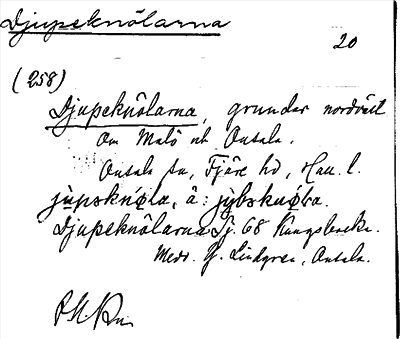 Djupeknölarna
20
(258)
Djupeknölarna, grunder nordväst
om Malö ut Onsala.
Onsala sn, Fjäre hd, Hall. l.
jùpsknø̀la, ä: jỳbsknø̀la.
Djupeknölarna Sj. 68 Kungsbacka.
Medd. G. Lindgren, Onsala.